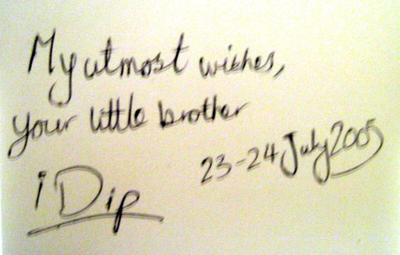 My utmost wishes,
your little brother
23-24 July 2005
iDip